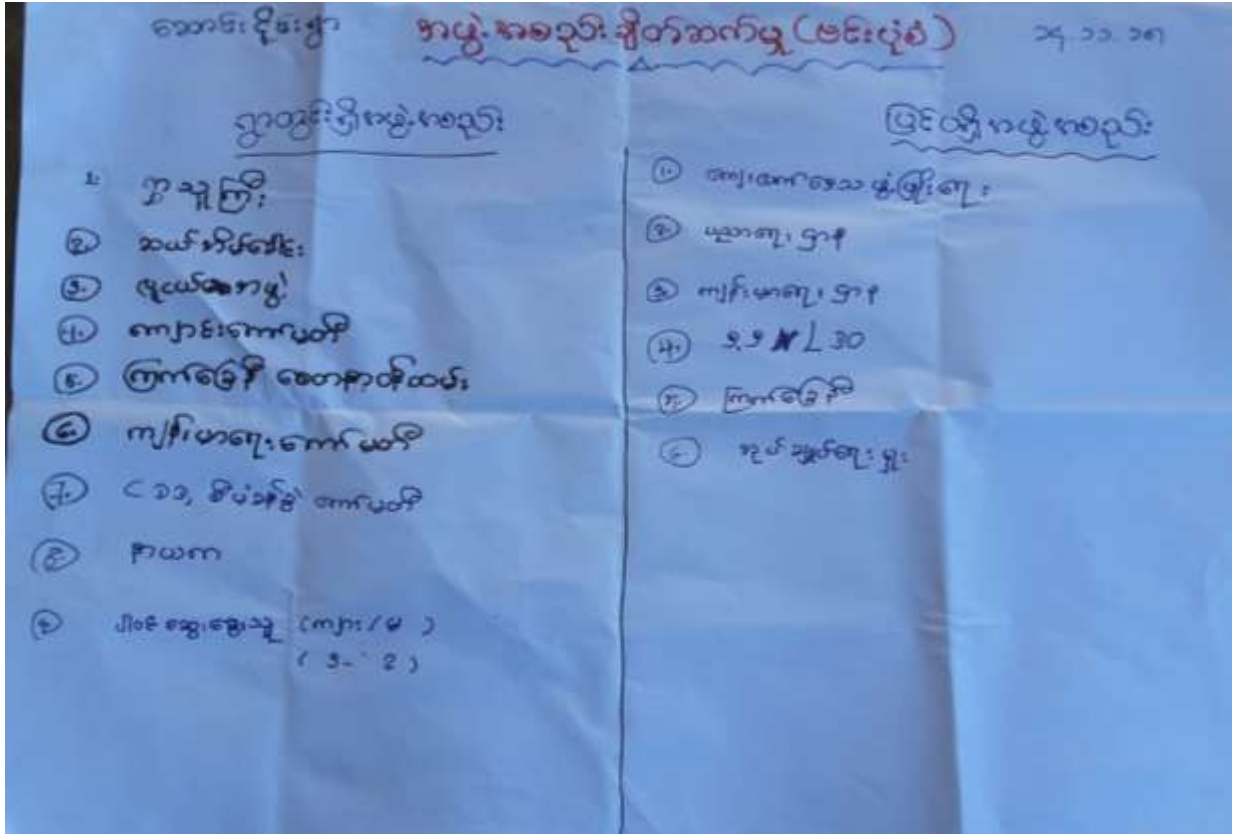 သောင်းငိုင်းရွာ
အဖွဲ့အစည်းချိတ်ဆက်မှု (ဗင်းပုံစံ)
၁၄.၁၁.၁၈
ရွာတွင်းရှိအဖွဲ့အစည်း
၁. ရွာသူကြီး
၂. ဆယ်အိမ်ခေါင်း
၃. လူငယ်အဖွဲ့
၄. ကျောင်းကော်မတီ
၅. ကြက်ခြေနီ စေတနာ့ဝန်ထမ်း
၆. ကျန်းမာရေးကော်မတီ
၇. စီမံခန့်ခွဲ ကော်မတီ
၈. နာယက
၉. ပါဝင်ဆွေးနွေးသူ (ကျား/မ)
ပြင်ပရှိအဖွဲ့အစည်း
၁. ကျေးလက်ဒေသဖွံ့ဖြိုးရေး
၂. ပညာရေးဌာန
၃. ကျန်းမာရေးဌာန
၅. ကြက်ခြေနီ
၆. အုပ်ချုပ်ရေးမှူး